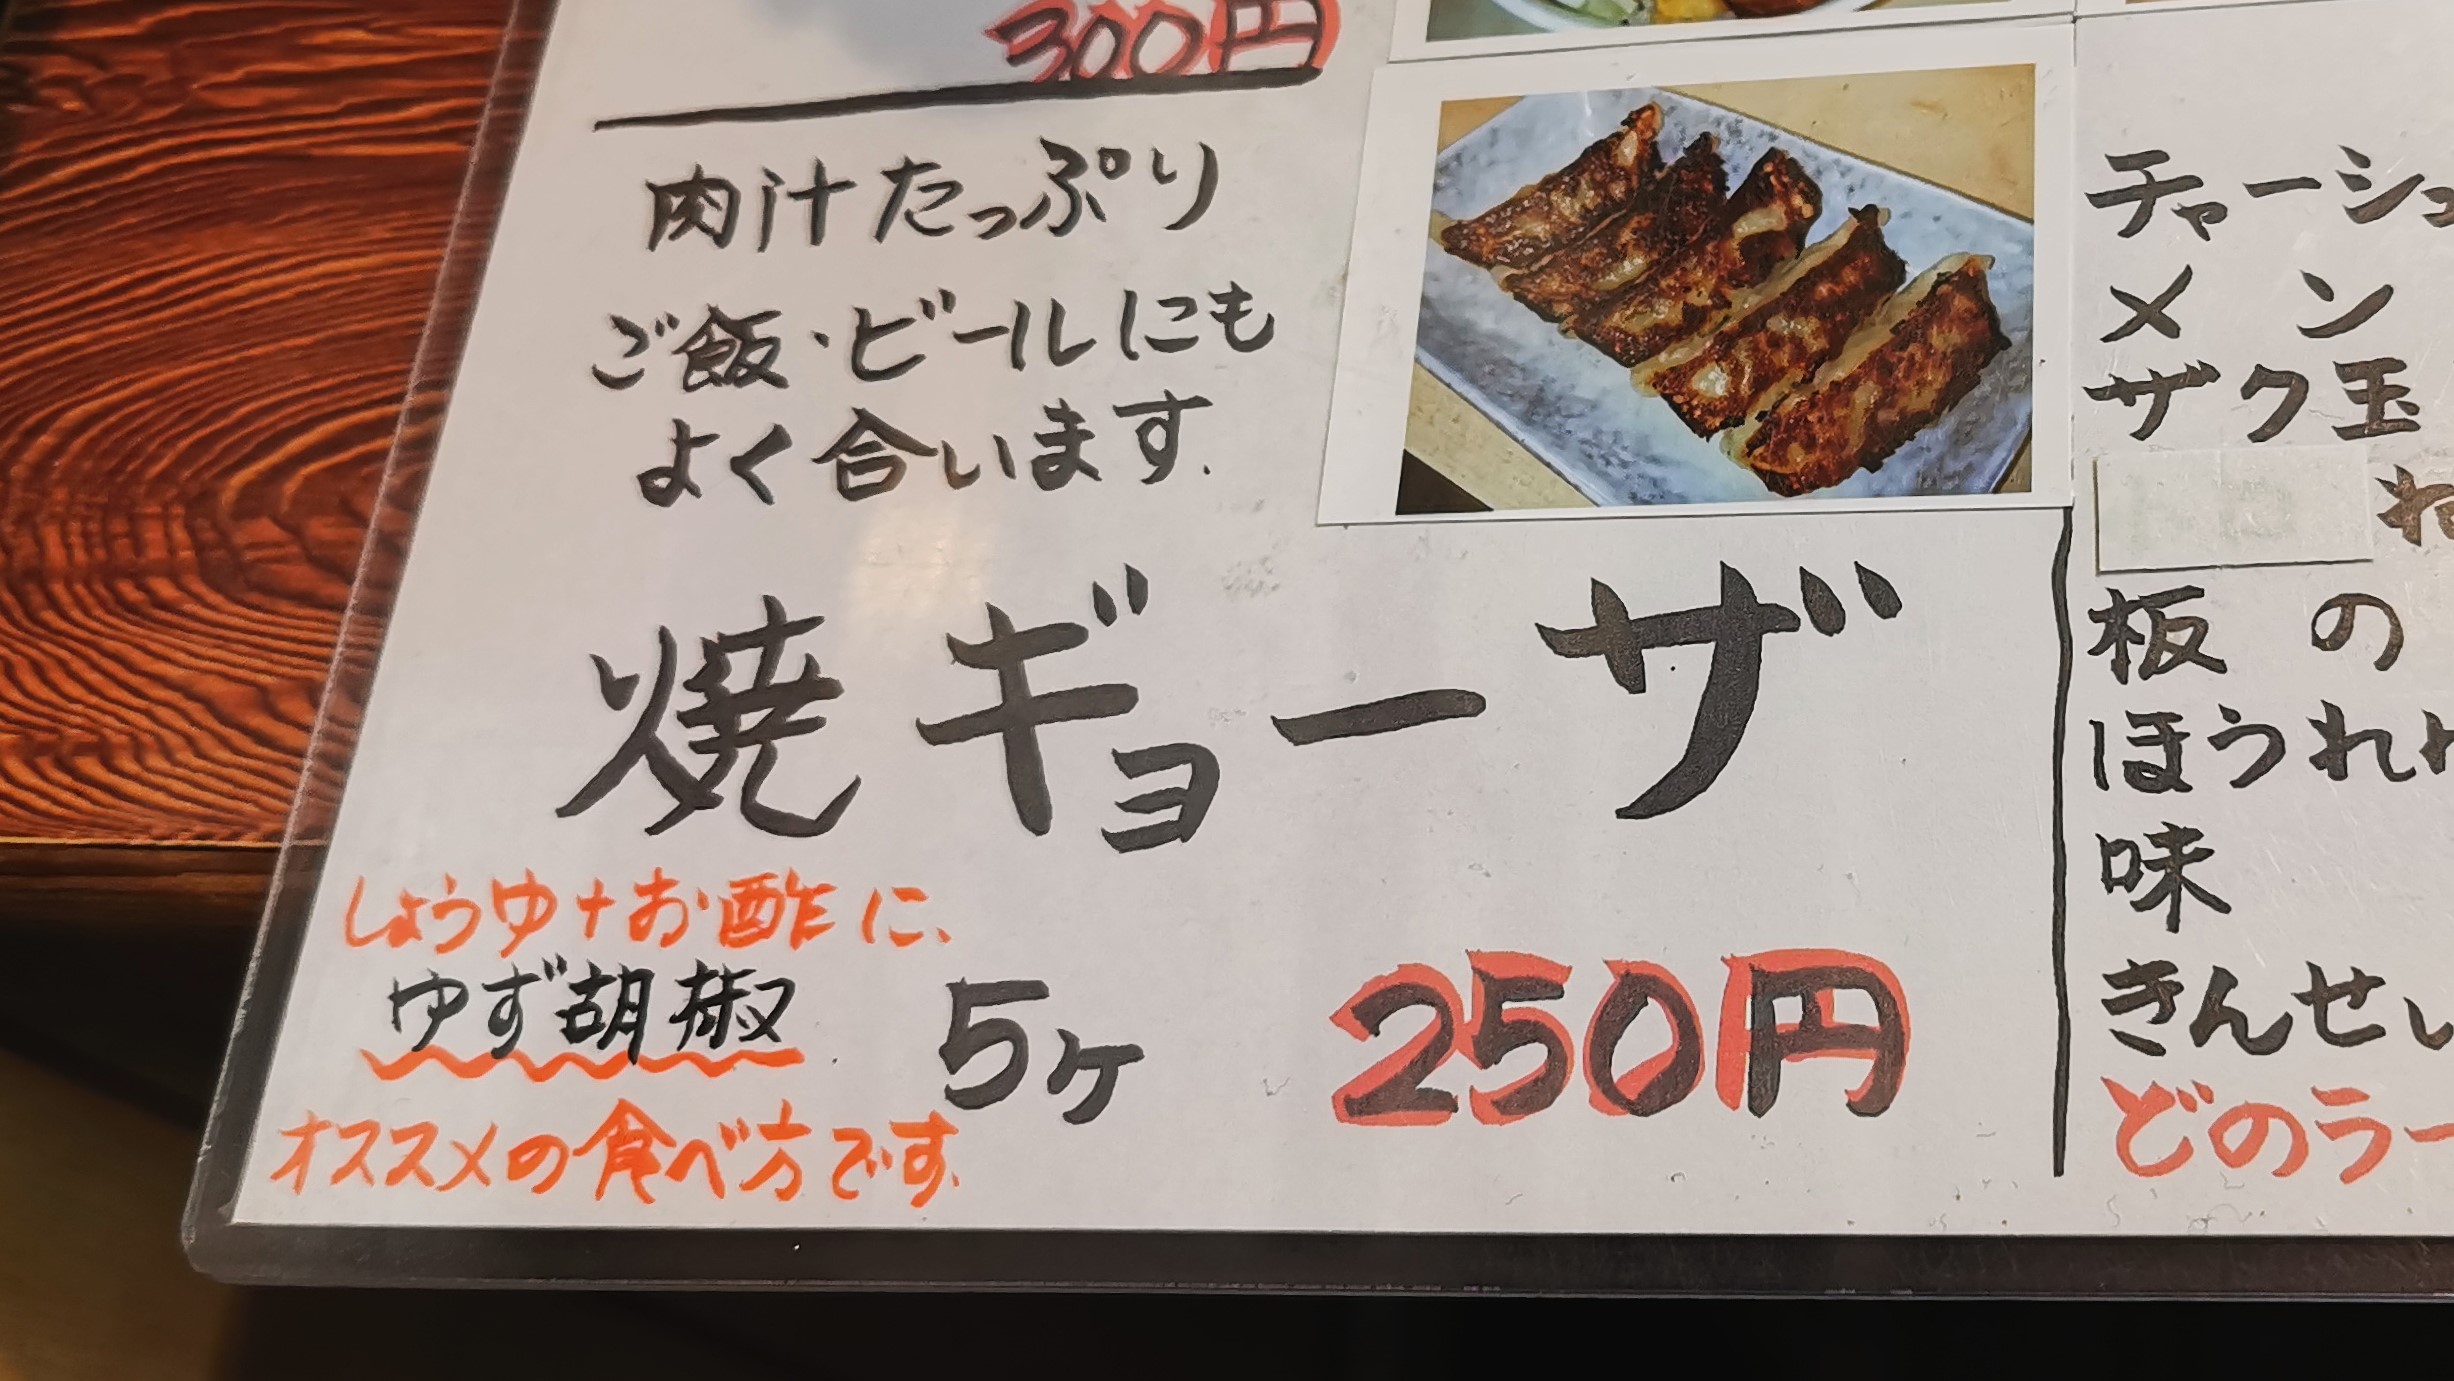 300円
肉汁たっぷり
ご飯・ビールにも
よく合います.
焼ギョーザ
しょうゆ+お酢に、
ゆず胡椒
オススメの食べ方です.
5ヶ 250円
チャーシュ
メン
ザク玉
ね
板の
ほうれ
味
きんせい
どのラー